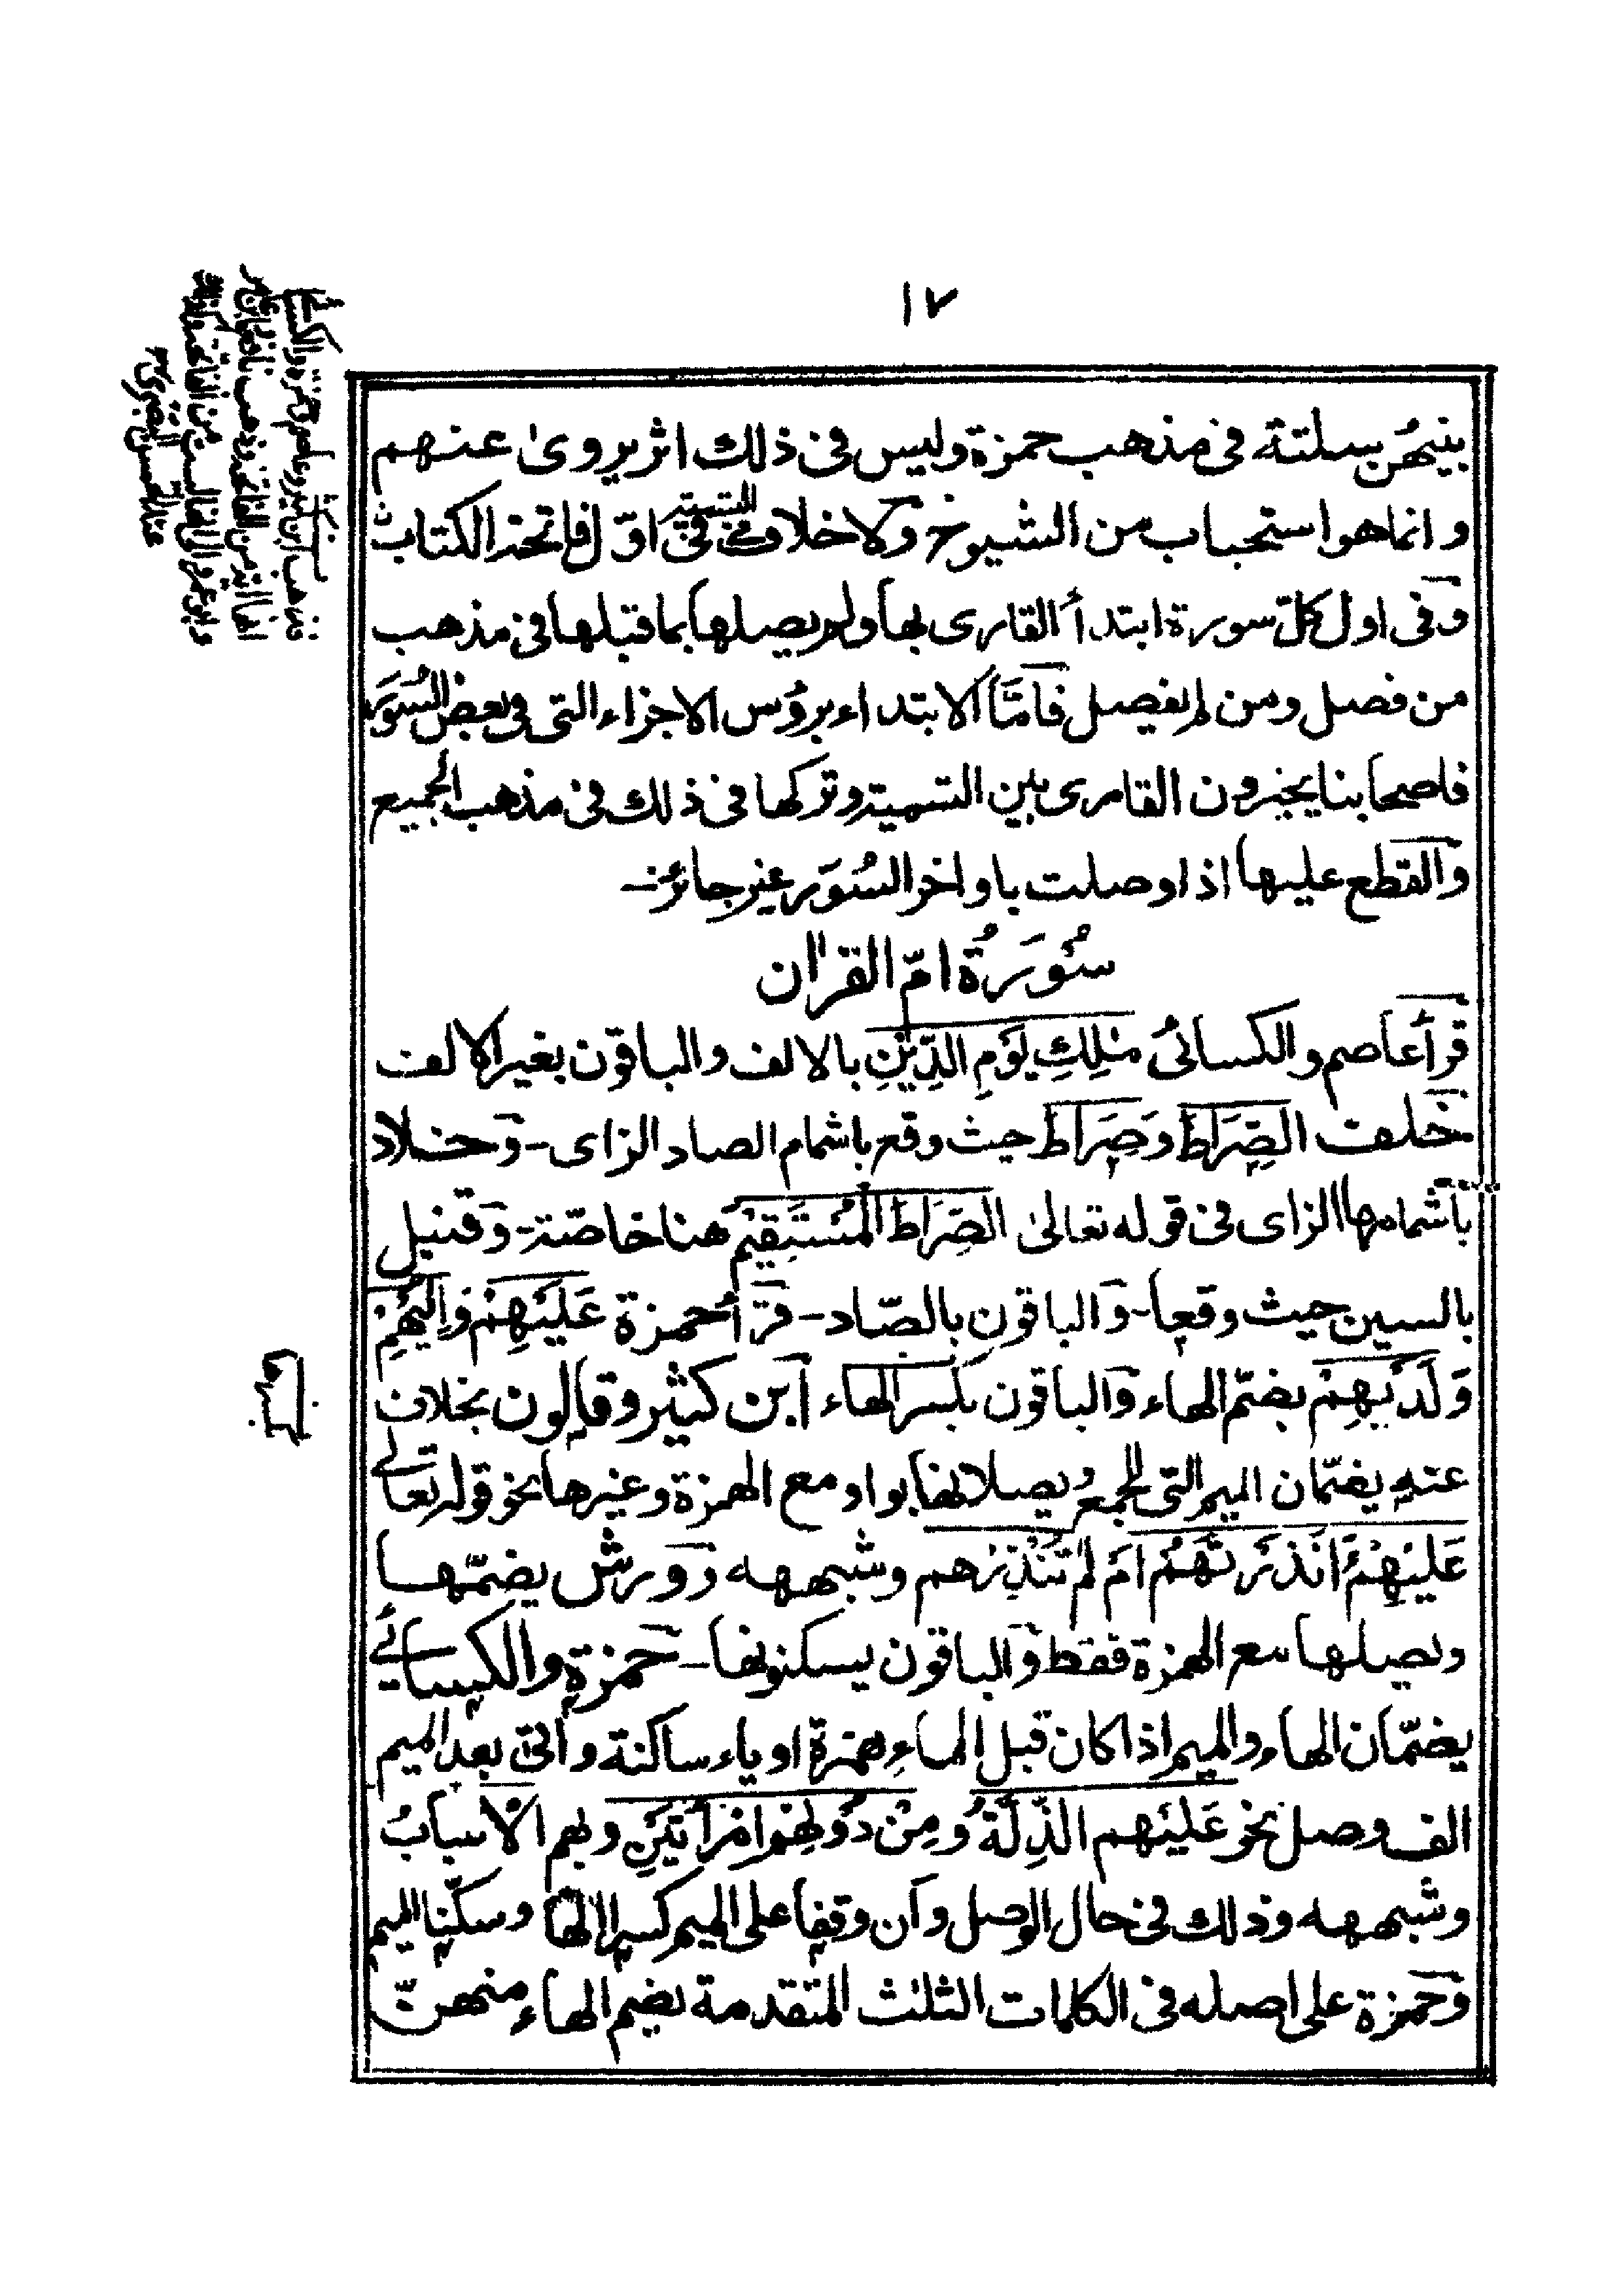 ١٧
بينهن سكتة فى مذهب حمزة وليس فى ذلك اثر يروىٰ عنهم
وانما هو استحباب من الشيوخ ولا خلاف فى التسمية فى اوّل فاتحة الكتاب
وفى اول كلّ سورة ابتدأ القارى بها ولم يصلها بما قبلها فى مذهب
من فصل ومن لم يفصل فامّا الابتداء برؤس الاجزاء التى فى بعض السُوَر
فاصحابنا يخيرون القارى بين التسمية وتركها فى ذلك فى مذهب الجميع
والقطع عليها اذا وصلت باواخر السُوَر غير جائز
سُوْرَةُ امّ القراٰن
قرأ عاصم والكسائى مٰلِكِ يَوْمِ الدِّيْنِ بالالف والباقون بغير الالف
خلف الصِّرَاطَ وَصِرَاطَ حيث وقع باشمام الصاد الزاى - وخلاد
باشمامها الزاى فى قوله تعالىٰ الصِّرَاطَ الْمُسْتَقِيْمَ هنا خاصّة - وقنبل
بالسين حيث وقعا - والباقون بالصّاد - قرأ حمزة عَلَيْهِمْ وَاِلَيْهِمْ
وَلَدَيْهِمْ بضمّ الهاء والباقون بكسر الهاء ابن كثير وقالون بخلاف
عنه يضمّان الميم التى للجمع ويصلانها بواو مع الهمزة وغيرها نحو قوله تعالے
عَلَيْهِمْ ءَاَنْذَرْتَهُمْ اَمْ لَمْ تُنْذِرْهم وشبهه وورش يضمّها
ويصلها مع الهمزة فقط والباقون يسكنونها - حمزة والكسائے
يضمّان الهاء والميم اذا كان قبل الهاء همزة او ياء ساكنة واتىٰ بعد الميم
الف وصل نحو عَلَيْهم الذِّلَّةُ وَمِنْ دُوْنِهِمُ امْرَأَتَيْنِ وبهم الاَسبابُ
وشبهه وذلك فى حال الوصل وان وقفا على الميم كسرا الهاء وسكّنا الميم
وحمزة على اصله فى الكلمات الثلٰث المتقدمة بضم الهاء منهنّ